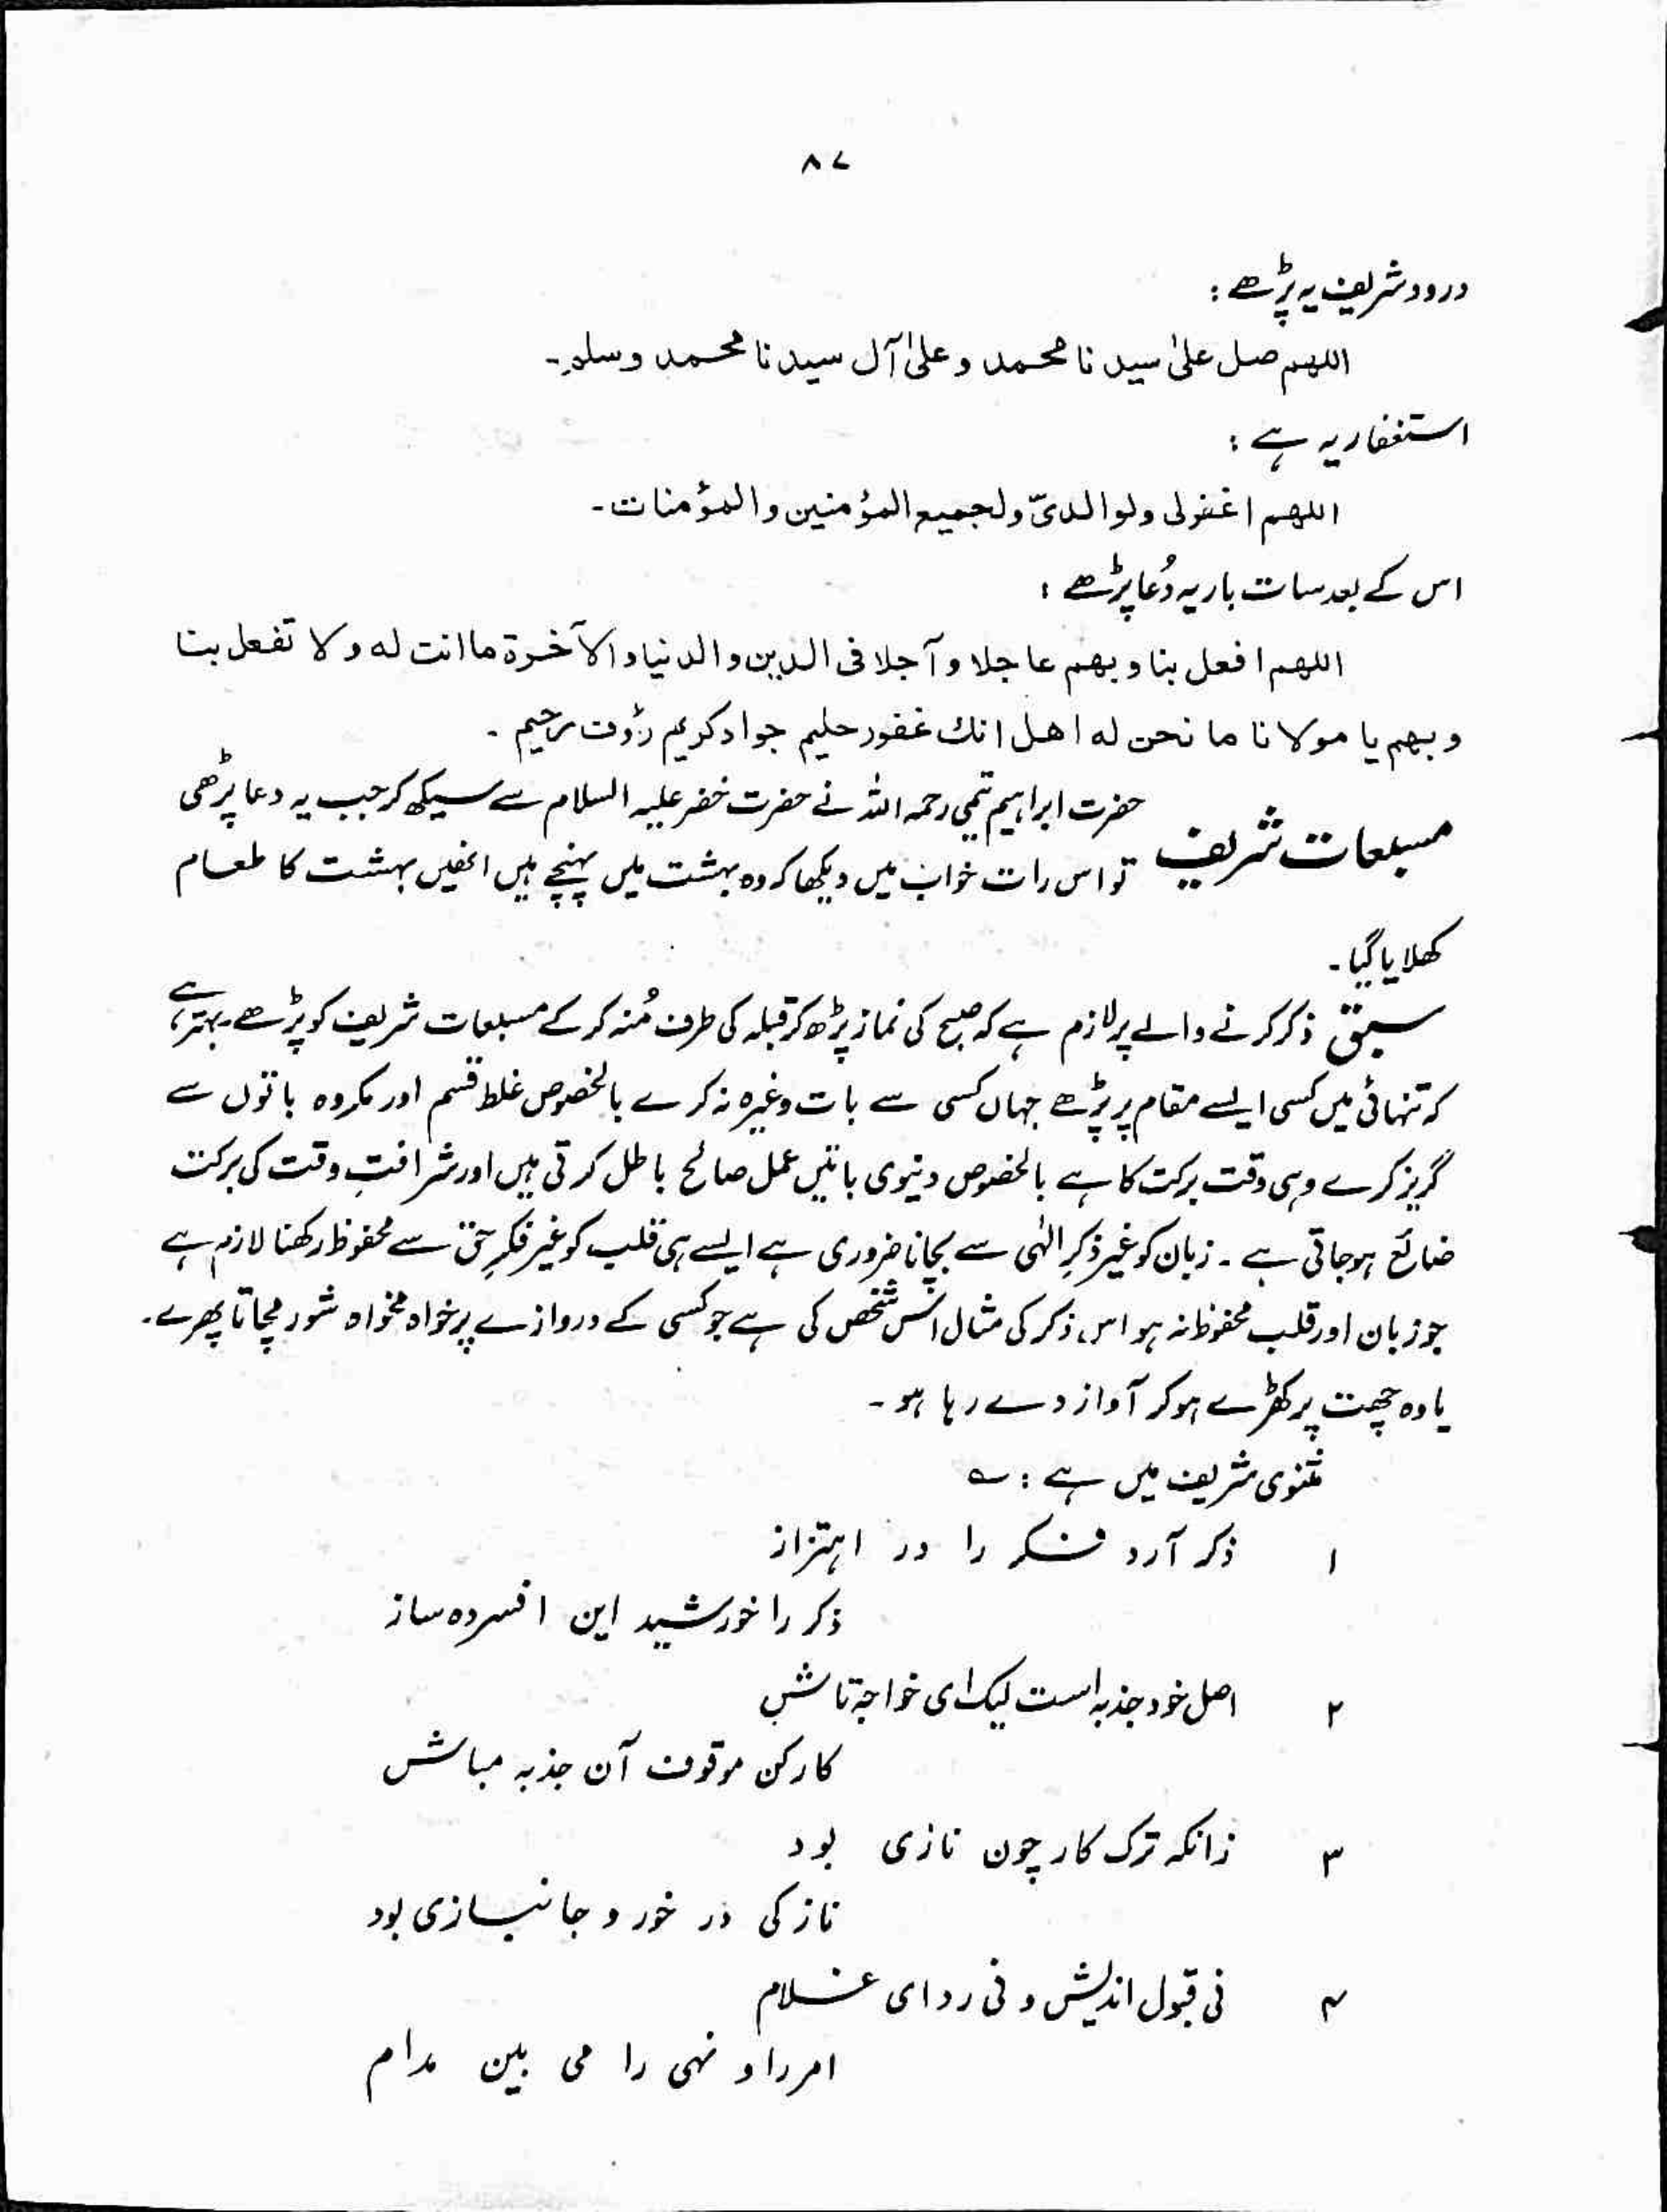 ۸۷
درود شریف یہ پڑھے :
اللهم صل علیٰ سیدنا محمد و علیٰ آل سیدنا محمد وسلم۔
استغفار یہ ہے :
اللهم اغفرلی ولوالدیّ ولجمیع المؤمنین والمؤمنات۔
اس کے بعد سات بار یہ دُعا پڑھے :
اللهم افعل بنا وبهم عاجلا و آجلا فی الدین والدنیا والآخرة ما انت له ولا تفعل بنا
وبهم یا مولانا ما نحن له اهل انك غفور حلیم جواد کریم رؤف رحیم ۔
مسبعات شریف حضرت ابراہیم تیمی رحمہ اللہ نے حضرت خضر علیہ السلام سے سیکھ کر جب یہ دعا پڑھی
تو اس رات خواب میں دیکھا کہ وہ بہشت میں پہنچے ہیں انھیں بہشت کا طعام
کھلایا گیا۔
سبق ذکر کرنے والے پر لازم ہے کہ صبح کی نماز پڑھ کر قبلہ کی طرف مُنہ کر کے مسبعات شریف کو پڑھے۔ بہتر ہے
کہ تنہائی میں کسی ایسے مقام پر پڑھے جہاں کسی سے بات وغیرہ نہ کرے بالخصوص غلط قسم اور مکروہ باتوں سے
گریز کرے وہی وقت برکت کا ہے بالخصوص دنیوی باتیں عمل صالح باطل کرتی ہیں اور شرافتِ وقت کی برکت
ضائع ہو جاتی ہے ۔ زبان کو غیر ذکرِ الٰہی سے بچانا ضروری ہے ایسے ہی قلب کو غیر فکرِ حق سے محفوظ رکھنا لازم ہے
جو زبان اور قلب محفوظ نہ ہو اس ذکر کی مثال اس شخص کی ہے جو کسی کے دروازے پر خواہ مخواہ شور مچاتا پھرے۔
یا وہ چھت پر کھڑے ہو کر آواز دے رہا ہو ۔
مثنوی شریف میں ہے : ؎
۱ ذکر آرد فکر را در اہتزاز
ذکر را خورشید این افسردہ ساز
۲ اصل خود جذبہ است لیک ای خواجہ تاش
کار کن موقوف آن جذبہ مباش
۳ زانکہ ترک کار چون نازی بود
ناز کی در خور و جانبازی بود
۴ نی قبول اندیش و نی رد ای غلام
امر را و نہی را می بین مدام